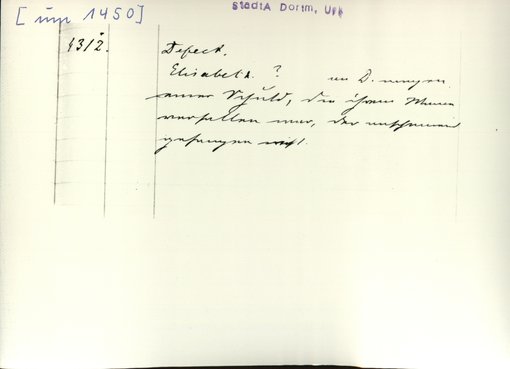 [um 1450]
StadtA Dortm, Urk
4312.
Defect.
Elisabet h. ? an D. wegen
einer Schuld, die ihrem Manne
verfallen war, der
gefangen